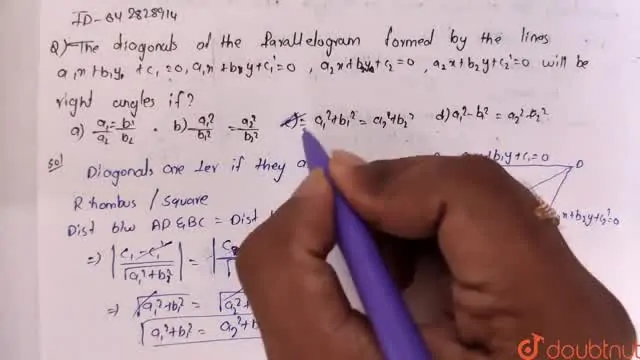 ID-64 2828914
Q) The diagonals of the parallelogram formed by the lines
a₁x + b₁y + c₁ = 0, a₁x + b₁y + c₁' = 0, a₂x + b₂y + c₂ = 0, a₂x + b₂y + c₂' = 0 will be
right angles if?
a) a₁/a₂ = b₁/b₂ . b) a₁²/b₁² = a₂²/b₂² c) a₁² + b₁² = a₂² + b₂² d) a₁² - b₁² = a₂² - b₂²
Sol Diagonals are ⊥er if they
b₁y + c₁ = 0 D
Rhombus / square
x + b₂y + c₂' = 0
Dist b/w AD & BC = Dist
⇒ |c₁ - c₁' / √a₁² + b₁²| = |
⇒ √a₁² + b₁² = √a₂²
a₁² + b₁² = a₂² + b
doubtnut